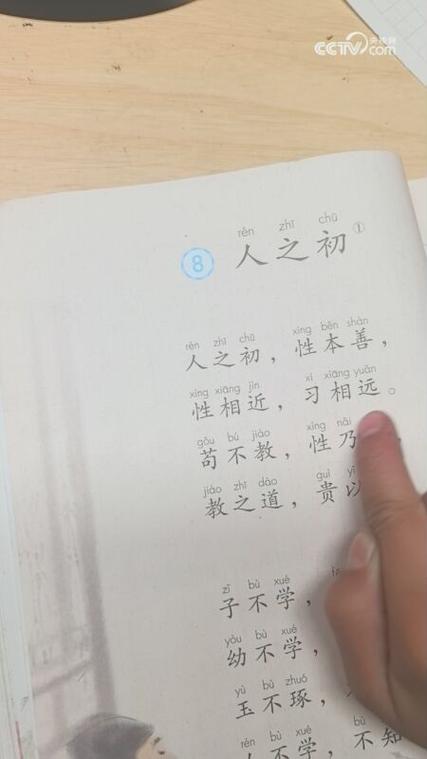 CCTV.com 央视网
rén zhī chū
8 人之初①
rén zhī chū xìng běn shàn
人之初，性本善，
xìng xiāng jìn xí xiāng yuǎn
性相近，习相远。
gǒu bú jiào xìng nǎi
苟不教，性乃，
jiào zhī dào guì yǐ
教之道，贵以
zǐ bù xué
子不学，
yòu bù xué
幼不学，
yù bù zhuó
玉不琢，
rén bù xué bù
人不学，不知